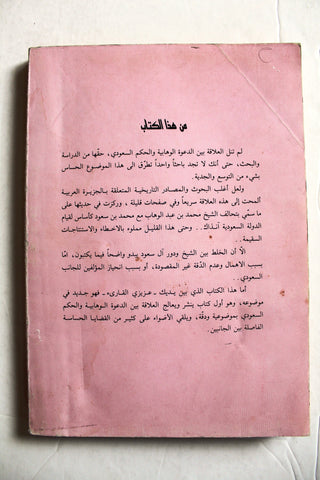 من هذا الكتاب
لم تنل العلاقة بين الدعوة الوهابية والحكم السعودي، حقّها من الدراسة
والبحث، حتى أنك لا تجد باحثاً واحداً تطرّق الى هذا الموضوع الحساس
بشيء من التوسع والجدية.
ولعل أغلب البحوث والمصادر التاريخية المتعلقة بالجزيرة العربية
ألمحت إلى هذه العلاقة سريعاً وفي صفحات قليلة ، وركزت في حديثها على
ما سمّي بتحالف الشيخ محمد بن عبد الوهاب مع محمد بن سعود كأساس لقيام
الدولة السعودية آنذاك . . وحتى هذا القليل مملوء بالاخطاء والاستنتاجات
السقيمة . .
الاّ أن الخلط بين الشيخ ودور آل سعود يبدو واضحاً فيما يكتبون، امّا
بسبب الاهمال وعدم الدّقة غير المقصودة، أو بسبب انحياز المؤلفين للجانب
السعودي . .
أما هذا الكتاب الذي بين يديك ـ عزيزي القارىء ـ فهو جديد في
موضوعه، وهو أول كتاب ينشر ويعالج العلاقة بين الدعوة الوهابية والحكم
السعودي بموضوعية ودقّة، ويلقي الأضواء على كثير من القضايا الحساسة
الفاصلة بين الجانبين.